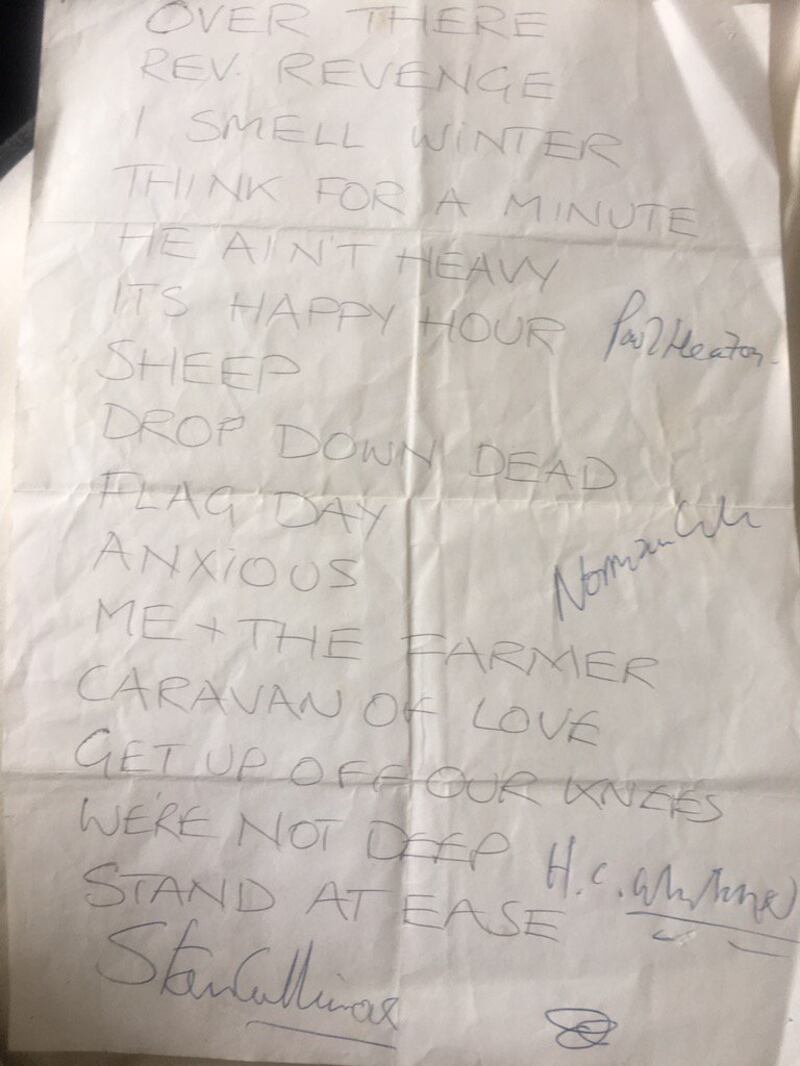 OVER THERE
REV. REVENGE
I SMELL WINTER
THINK FOR A MINUTE
HE AIN'T HEAVY
ITS HAPPY HOUR Paul Heaton
SHEEP
DROP DOWN DEAD
FLAG DAY
ANXIOUS
Norman Cook
ME + THE FARMER
CARAVAN OF LOVE
GET UP OFF OUR KNEES
WE'RE NOT DEEP
H.C.
STAND AT EASE
Stan Cullimore